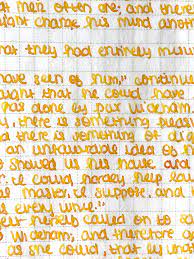 at men often are; and there
might change his mind anoth
that they had entirely mis
have seen of him," contin
ught that he could have
has done by pur Wickham
y, there is something pleasi
nd there is something of di
an unfavourable idea of h
o showed us his house and
I could hardly help lau
l master, I suppose, and
is every virtue."
self herself called on to
Wickham; and therefore g
as she could, that by what